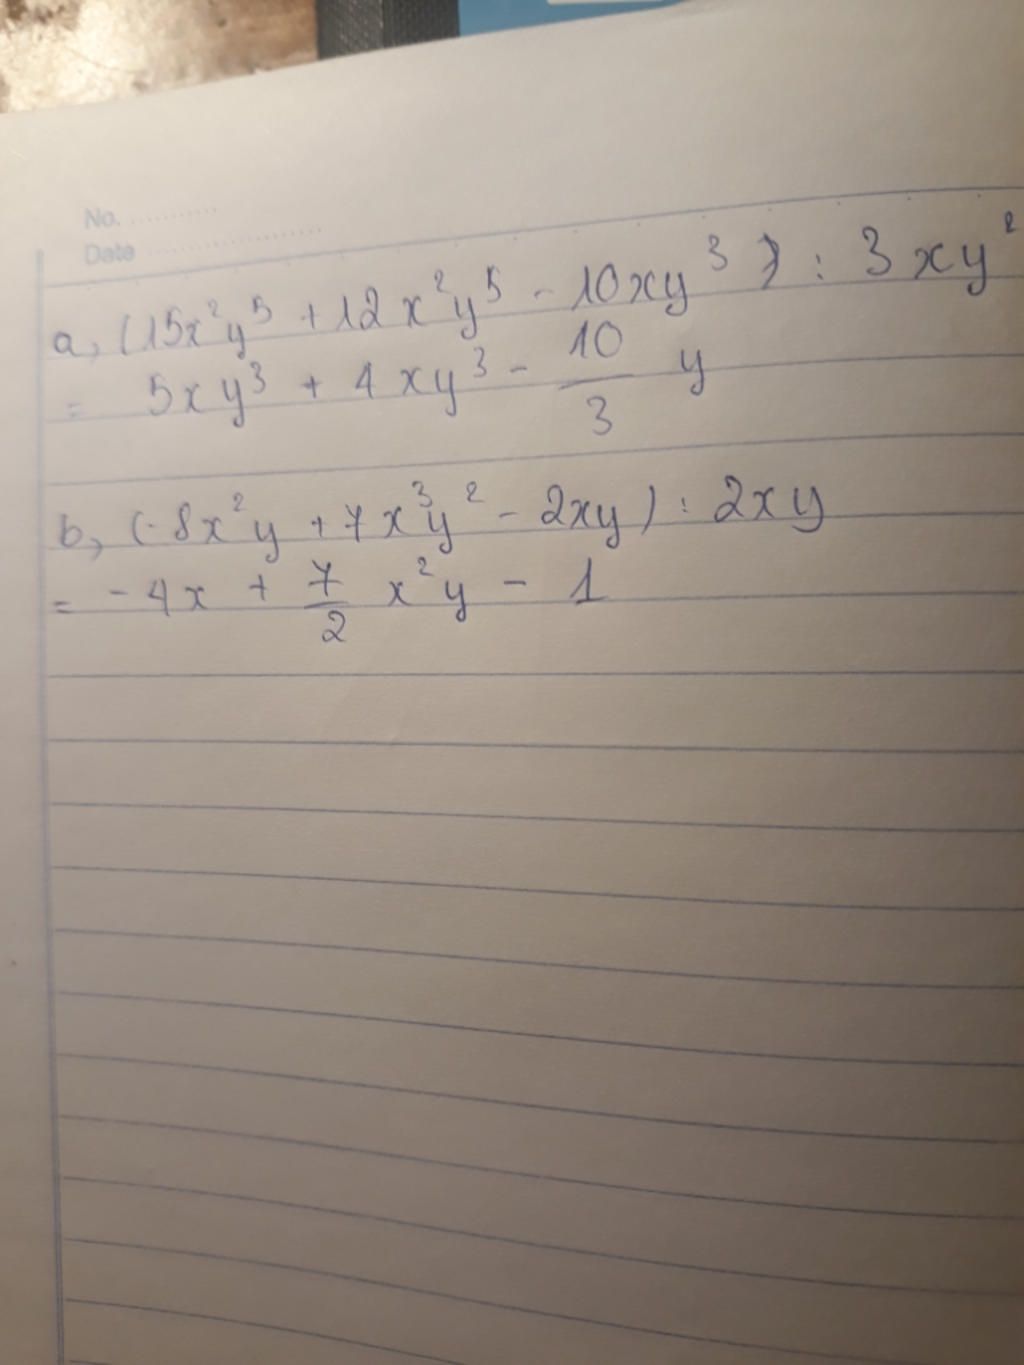 No. ............
Date ......................
a, (15x²y⁵ + 12x²y⁵ - 10xy³) : 3xy²
= 5xy³ + 4xy³ - 10/3 y
b, (-8x²y + 7x³y² - 2xy) : 2xy
= -4x + 7/2 x²y - 1